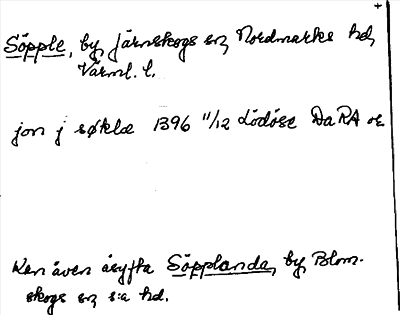 Söpple, by, Järnskogs sn, Nordmarks hd,
Värml. l.
jon j søklæ 1396 11/12 Lödöse DaRA or.
Kan även åsyfta Söpplanda, by, Blom-
skogs sn, s:a hd.